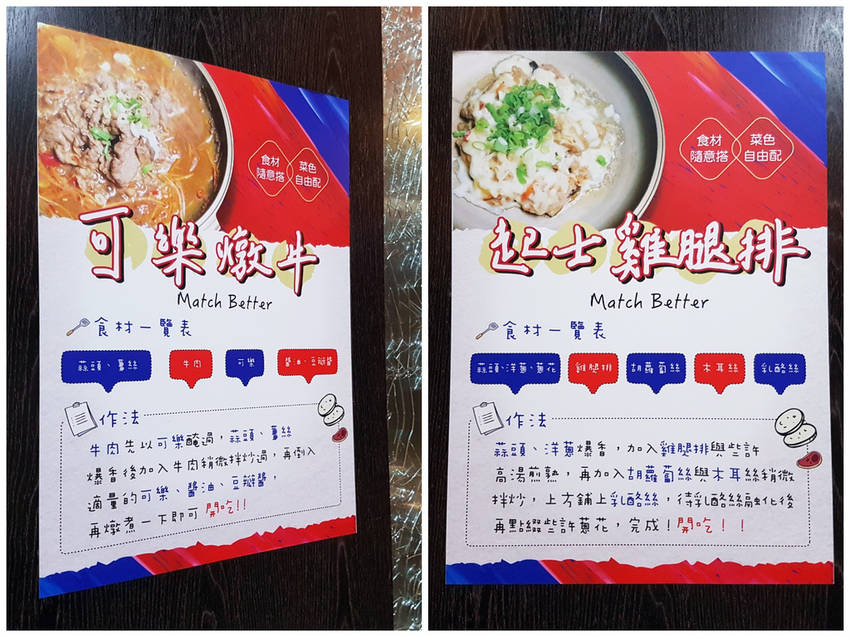 食材
隨意搭
菜色
自由配
可樂燉牛
Match Better
食材一覽表
蒜頭、薑絲
牛肉
可樂
醬油、豆瓣醬
作法
牛肉先以可樂醃過，蒜頭、薑絲
爆香後加入牛肉稍微拌炒過，再倒入
適量的可樂、醬油、豆瓣醬，
再燉煮一下即可開吃!!
食材
隨意搭
菜色
自由配
起士雞腿排
Match Better
食材一覽表
蒜頭、洋蔥、蔥花
雞腿排
胡蘿蔔絲
木耳絲
乳酪絲
作法
蒜頭、洋蔥爆香，加入雞腿排與些許
高湯煎熟，再加入胡蘿蔔絲與木耳絲稍微
拌炒，上方鋪上乳酪絲，待乳酪絲融化後
再點綴些許蔥花，完成！開吃！！